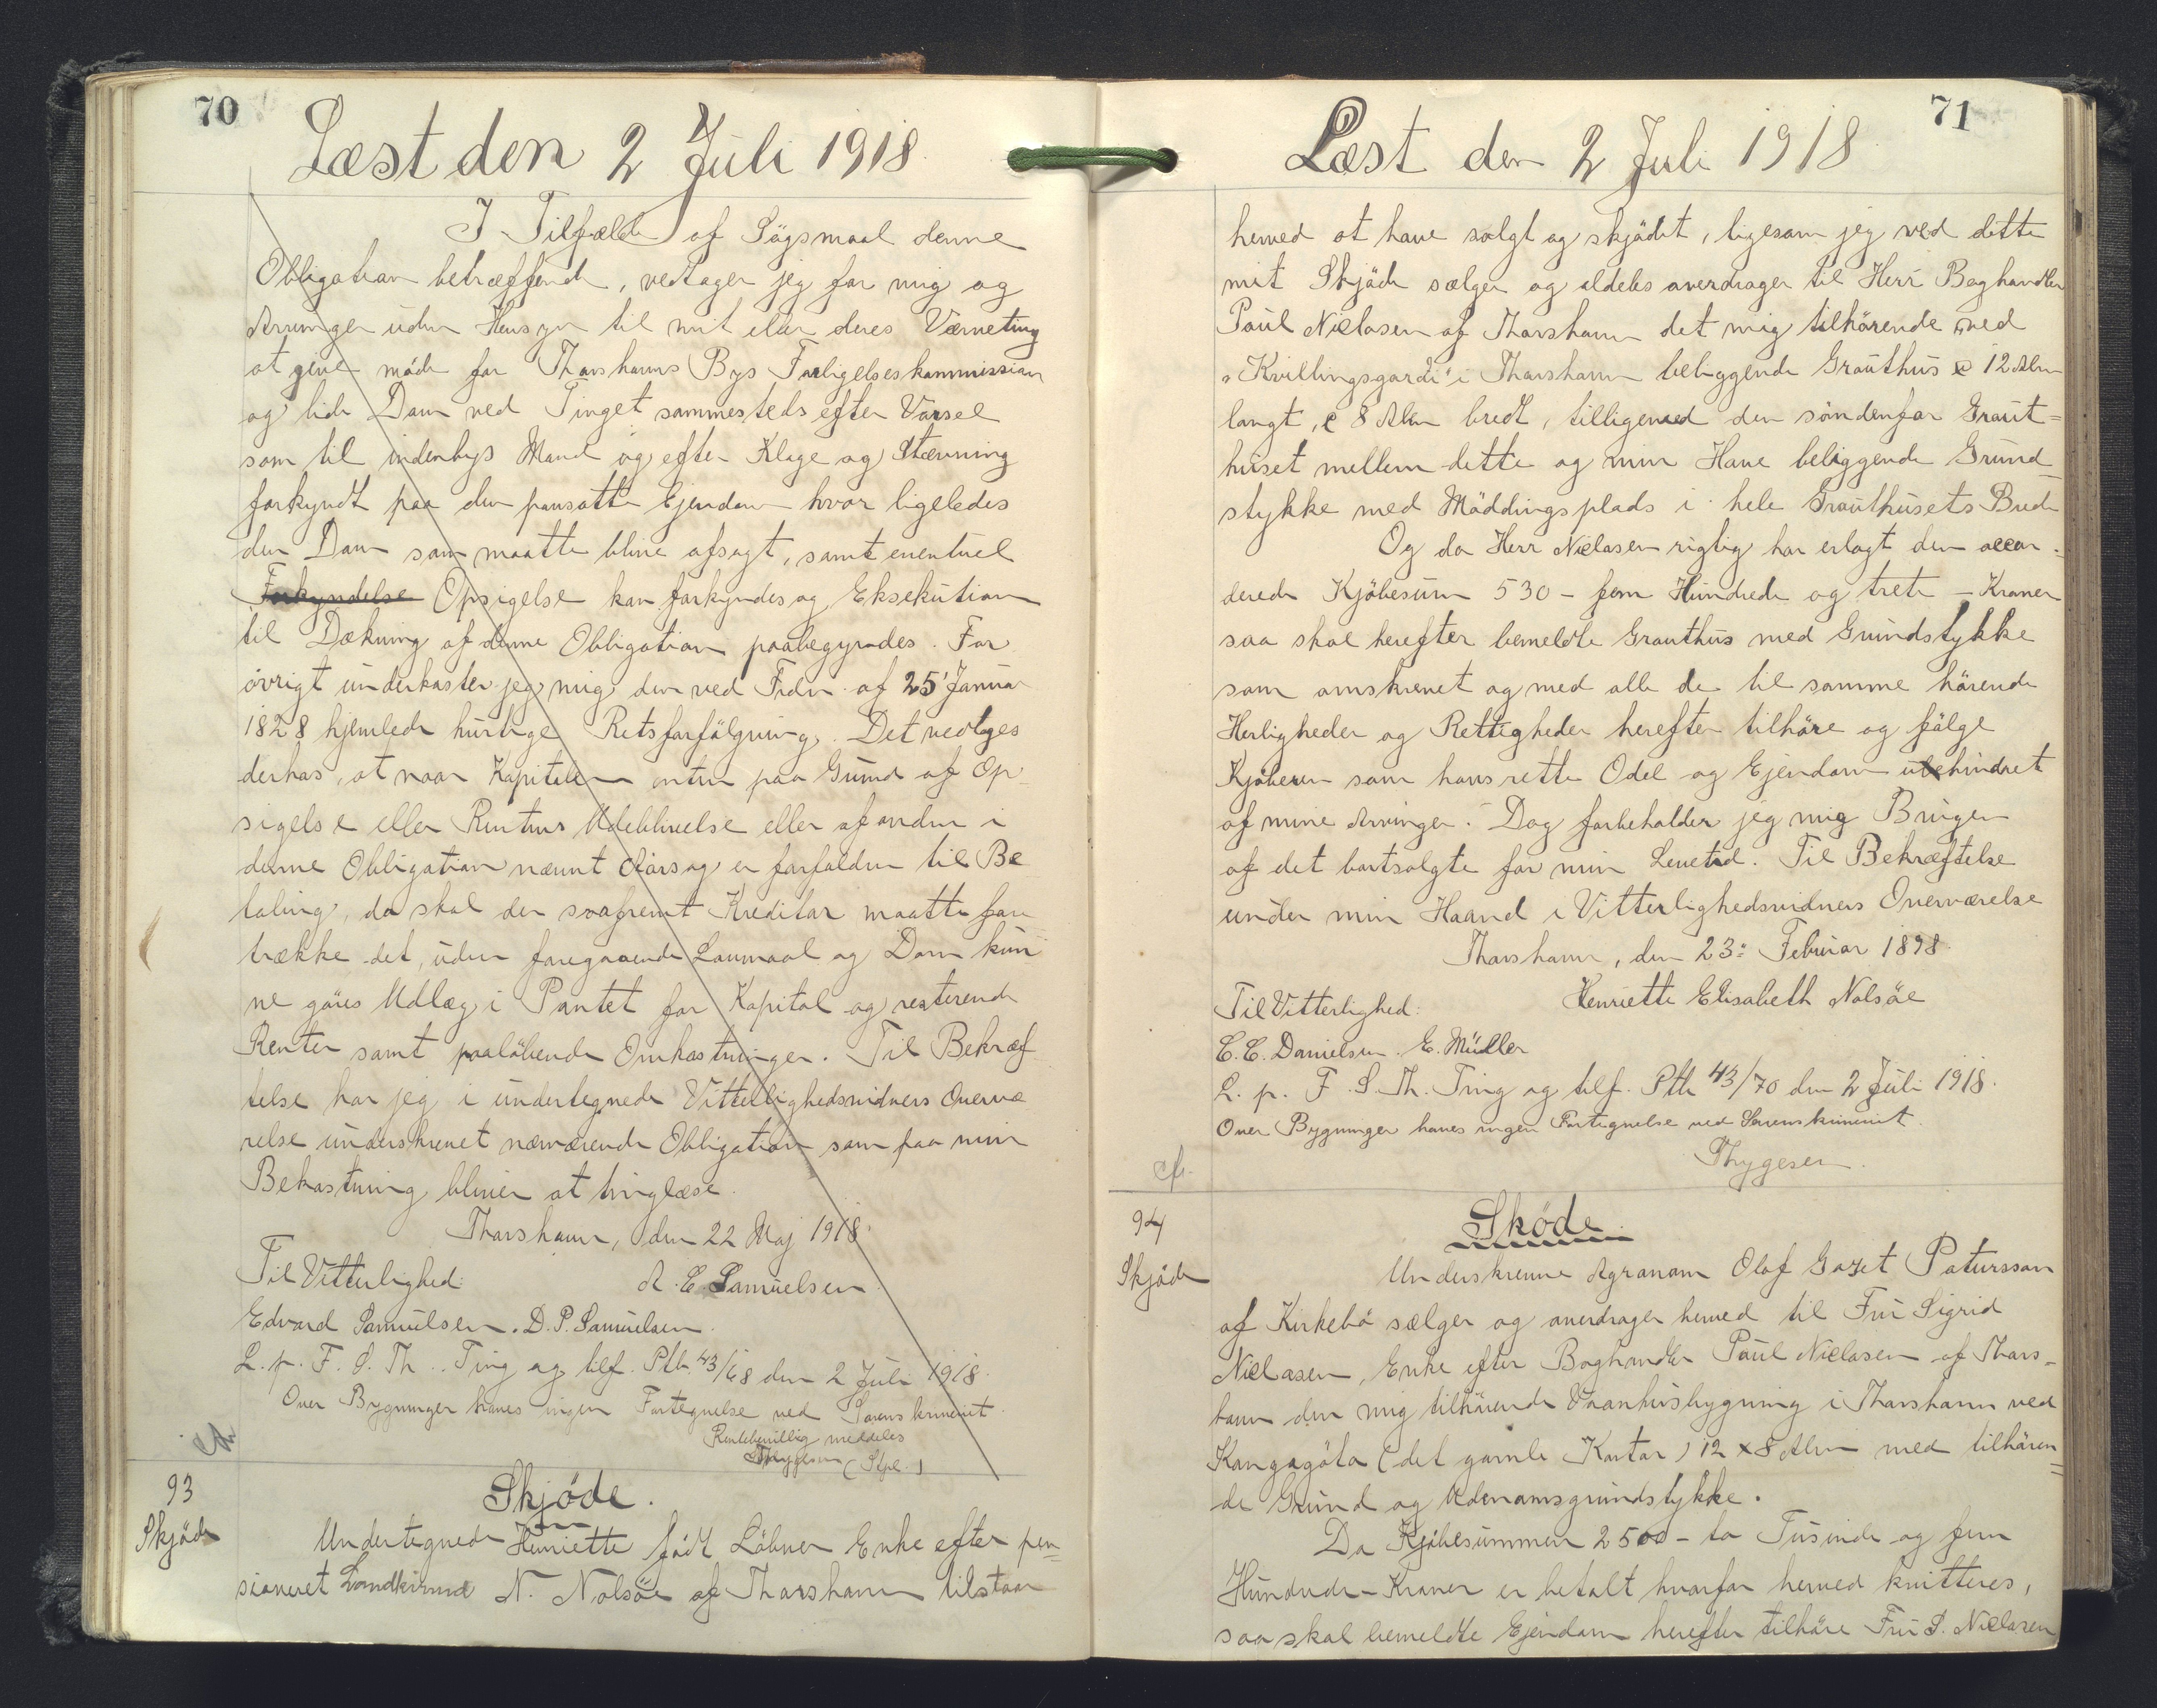 70
Læst den 2 Juli 1918.
I Tilfælde af Sögsmaal denne
Obligation betræffende, vedtager jeg for mig og
Arvinger uden Hensyn til mit eller deres Værneting
at give möde for Thorshavns Bys Forligelseskommission
og lide Dom ved Tinget sammesteds efter Varsel
som til indenbys Mand og efter Klage og Stævning
forkyndt paa den pansatte Ejendom hvor ligeledes
den Dom som maatte blive afsagt, samt eventuel
Forkyndelse Opsigelse kan forkyndes og Eksekution
til Dækning af denne Obligation paabegyndes. For
övrigt underkaster jeg mig den ved Frdn. af 25' Januar
1828 hjemlede hurtige Retsforfölgning. Det vedtages
derhos, at naar Kapitalen enten paa Grund af Op
sigelse eller Rentens Udeblivelse eller af anden i
denne Obligation nævnt Aarsag er forfalden til Be
taling, da skal der saafremt Kreditor maatte fore
trække det, uden foregaaende Lovmaal og Dom kun
ne göres Udlæg i Pantet for Kapital og resterende
Renter samt paalöbende Omkostninger. Til Bekræf
telse har jeg i undertegnede Vitterlighedsvidners Overvæ
relse underskrevet nærværende Obligation som paa min
Bekostning bliver at tinglæse.
Thorshavn, den 22 Maj 1918.
Til Vitterlighed: A. E. Samuelsen
Edvard Samuelsen. D. P. Samuelsen.
L. p. F. S. Th. Ting og tilf. Ptb. 43/68 den 2 Juli 1918.
Over Bygninger haves ingen Fortegnelse ved Sorenskriveriet.
Rentebevillig meddeles
Thygesen (Stpl.)
cfr.
93
Skjöde
Skjöde.
Undertegnede Henriette födt Löbner Enke efter pen=
sioneret Landkirurg N. Nolsöe af Thorshavn tilstaar
71
Læst den 2 Juli 1918.
herved at have solgt og skjödet, ligesom jeg ved dette
mit Skjöde sælger og aldeles overdrager til Herr Boghandler
Paul Niclasen af Thorshavn det mig tilhörende ved
"Kvillingsgardi" i Thorshavn beliggende Grauthus c 12 Alen
langt, c 8 Alen bredt, tilligemed den söndenfor Graut=
huset mellem dette og min Have beliggende Grund
stykke med Möddingsplads i hele Grauthusets Brede
Og da Herr Niclasen rigtig har erlagt den accor.
derede Kjöbesum 530 - fem Hundrede og treti - Kroner
saa skal herefter bemeldte Grauthus med Grundstykke
som omskrevet og med alle de til samme hörende
Herligheder og Rettigheder herefter tilhöre og fölge
Kjöberen som hans rette Odel og Ejendom ubehindret
af mine Arvinger. Dog forbeholder jeg mig Brugen
af det bortsolgte for min Levetid. Til Bekræftelse
under min Haand i Vitterlighedsvidners Overværelse
Thorshavn, den 23: Februar 1898.
Til Vitterlighed: Henriette Elisabeth Nolsöe
C. C. Danielsen. E. Müller
L. p. F. S. Th. Ting og tilf. Ptb 43/70 den 2 Juli 1918.
Over Bygninger haves ingen Fortegnelse ved Sorenskriveriet.
Thygesen.
cfr.
94
Skjöde
Sköde.
Underskrevne Agronom Olof Gazet Patursson
af Kirkebö sælger og overdrager herved til Fru Sigrid
Niclasen, Enke efter Boghandler Paul Niclasen af Thors=
havn den mig tilhörende Vaanhusbygning i Thorshavn ved
Kongagöta (det gamle Kontor) 12 x 8 Alen med tilhören=
de Grund og Udenomsgrundstykke.
Da Kjöbesummen 2500 - to Tusinde og fem
Hundrede - Kroner er betalt hvorfor herved kvitteres,
saa skal bemeldte Ejendom herefter tilhöre Fru S. Niclasen